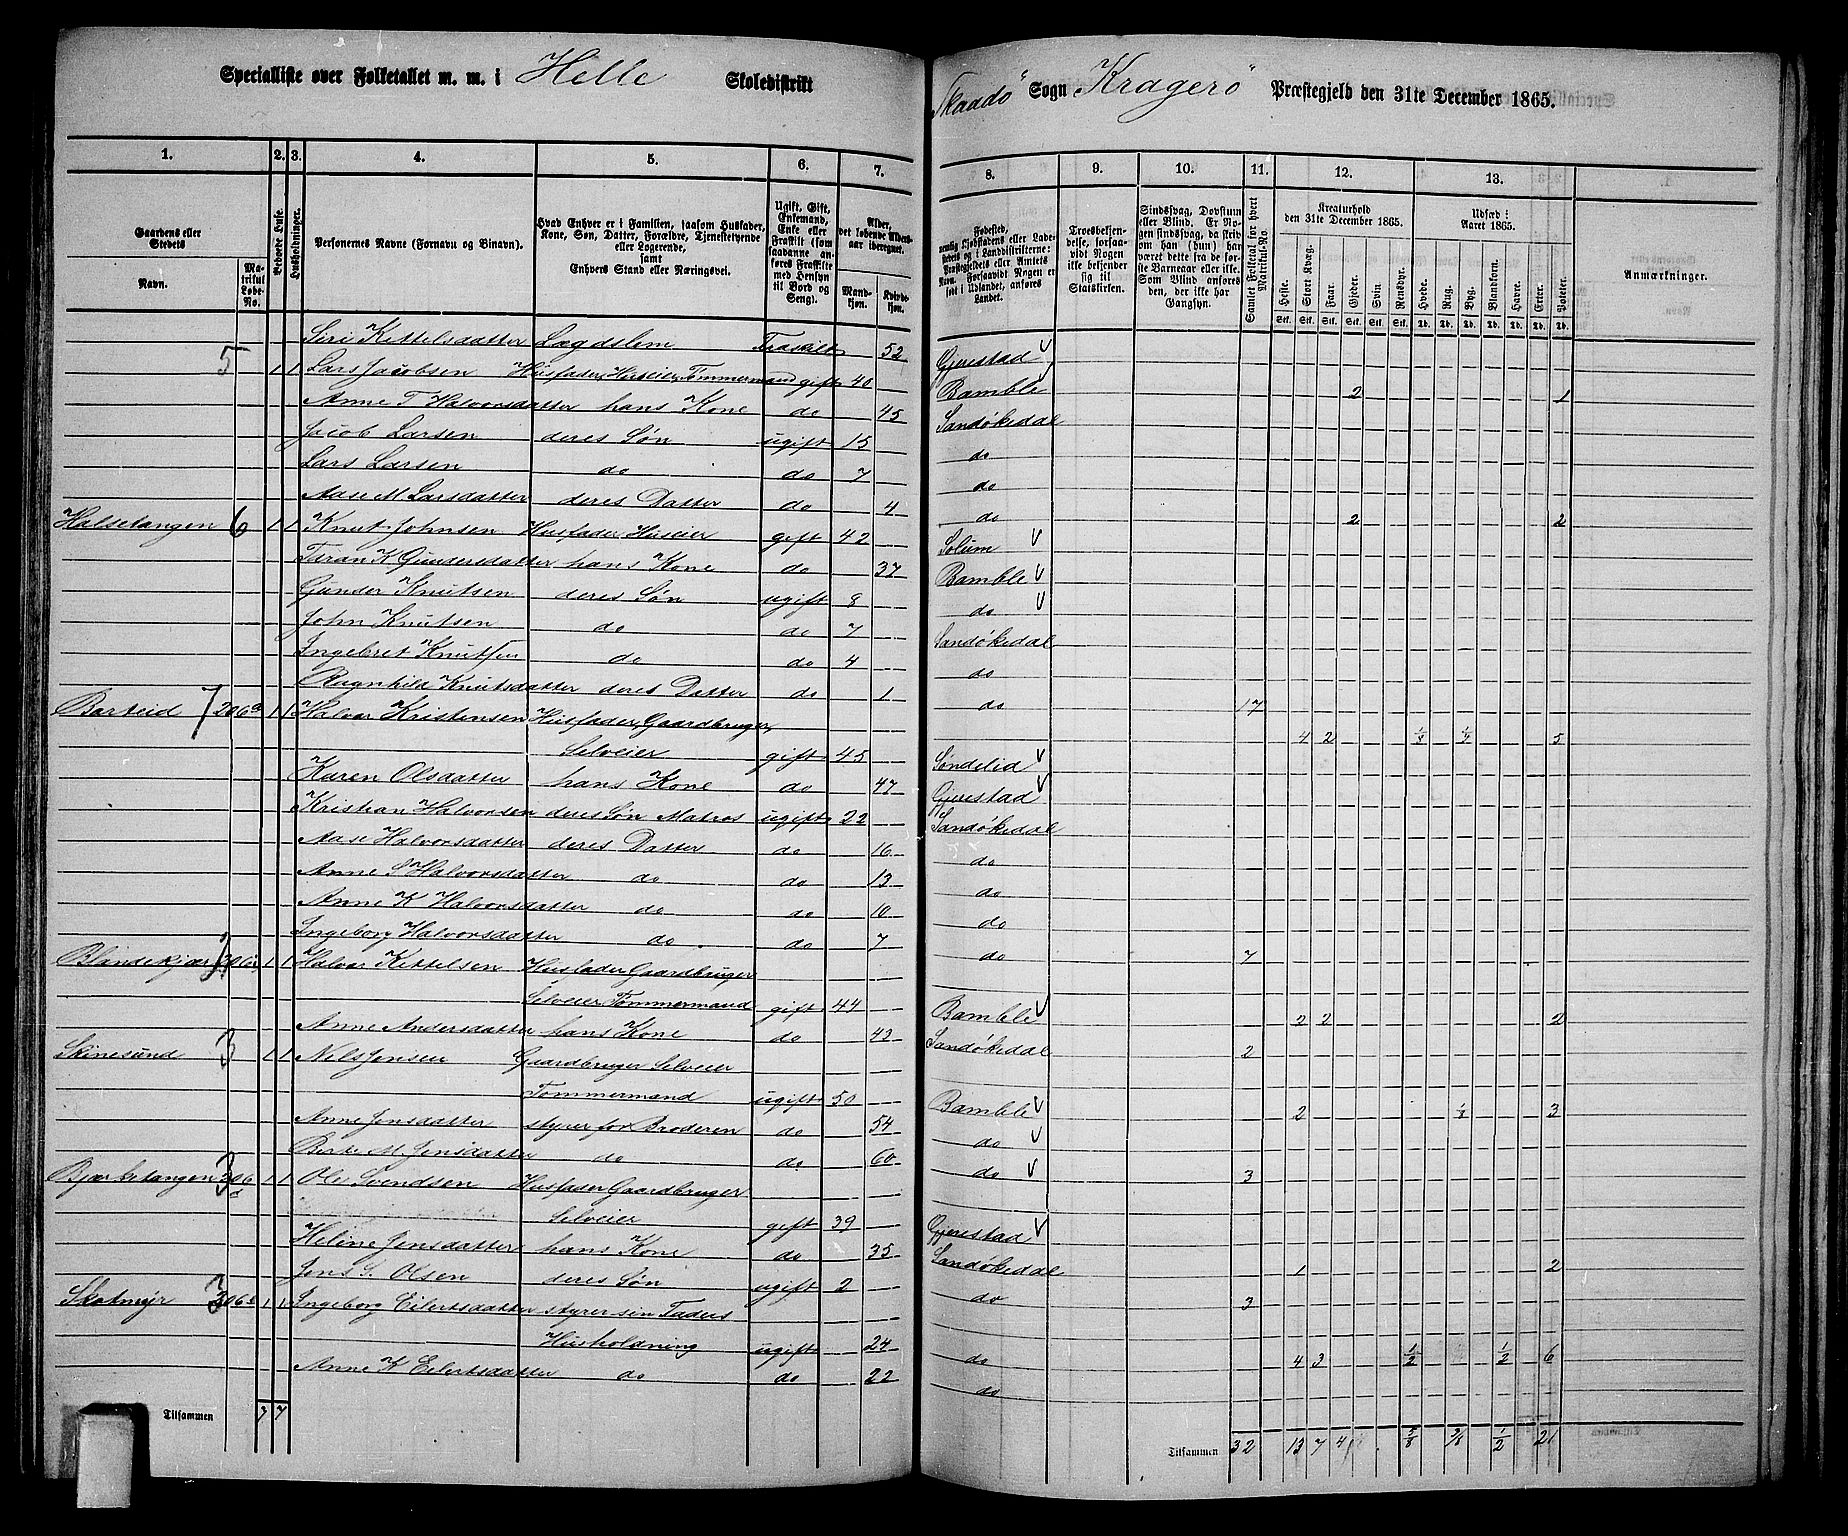 Specialliste over Folketallet m. m. i Helle Skoledistrikt
Skaadö Sogn Kragerö Præstegjeld den 31te December 1865.
1. 2. 3. 4. 5. 6. 7.
Gaardens eller Stedets
Navn.
Matrikul Løbe-No.
Beboede Huse.
Husholdninger.
Personernes Navne (Fornavn og Binavn).
Hvad Enhver er i Familien, saasom Husfader, Kone, Søn, Datter, Forældre, Tjenestetyende eller Logerende, samt Enhvers Stand eller Næringsvei.
Ugift, Gift, Enkemand, Enke eller Fraskilt (som saadanne anføres Fraskilte med Hensyn til Bord og Seng).
Alder, det løbende Alders-aar iberegnet.
Mandkjøn. Kvindekjøn.
Siri Kettelsdatter Lægdslem Fraskilt 52
5 1 1 Lars Jacobsen Husfader, Huseier, Tømmermand gift 40
Anne T Halvorsdatter hans Kone do 45
Jacob Larsen deres Søn ugift 15
Lars Larsen do do 7
Aase M Larsdatter deres Datter do 4
Halsetangen 6 1 1 Knut Johnsen Husfader, Huseier gift 42
Taran K Gundersdatter hans Kone do 37
Gunder Knutsen deres Søn ugift 8
John Knutsen do do 7
Ingebret Knutsen do do 4
Ragnhild Knutsdatter deres Datter do 1
Barteid 7 206a 1 1 Halvor Kristensen Husfader, Gaardbruger,
Selveier gift 45
Karen Olsdatter hans Kone do 47
Kristian Halvorsen deres Søn Matros ugift 22
Aase Halvorsdatter deres Datter do 16
Anne S Halvorsdatter do do 13
Anne K Halvorsdatter do do 10
Ingeborg Halvorsdatter do do 7
Blandekjær 1 1 Halvor Kittelsen Husfader, Gaardbruger
Selveier Tømmermand gift 44
Anne Andersdatter hans Kone do 43
Skinesund 3 1 1 Nils Jensen Gaardbruger Selveier
Tømmermand ugift 50
Anne Jensdatter styrer for Broderen do 54
Berte M Jensdatter do do 60
Bjærketangen 1 1 Ole Svendsen Husfader Gaardbruger
Selveier gift 39
Heline Jensdatter hans Kone do 35
Jens S. Olsen deres Søn ugift 2
Skotmyr 1 1 Ingeborg Eilertsdatter styrer sin Faders
Husholdning ugift 24
Anne K Eilertsdatter do do 22
Tilsammen 7 7
8. 9. 10. 11. 12. 13.
Troesbekjendelse, forsaavidt Nogen ikke bekjender sig til Statskirken.
Sindssvag, Døvstum eller Blind. Er Nogen sindssvag, da skrives om han (hun) har været dette fra de første Barneaar eller ikke. Som Blind anføres den, der ikke har Gangsyn.
Samlet Folketal for hvert Matrikul-No.
Kreaturhold den 31te December 1865.
Heste. Stort Kvæg. Faar. Gjeder. Svin. Rensdyr.
Udsæd i Aaret 1865.
Hvede. Rug. Byg. Blandkorn. Havre. Erter. Poteter.
Anmærkninger.
Gjerestad
Bamble 2 1
Sandøkedal
do
do
do 2 2
Solum
Bamble
do
Sandøkedal
do
do 17
4 2 5
Søndelid
Gjerestad
Sandøkedal
do
do
do
do 7
Bamble 2 2 2
Sandøkedal 2
Bamble 2 3
do
do 3
Gjerestad
Sandøkedal 1 2
do 3
do 4 3 1/2 1/2 6
do
Tilsammen 32 13 7 4 5/8 3/8 1/2 21